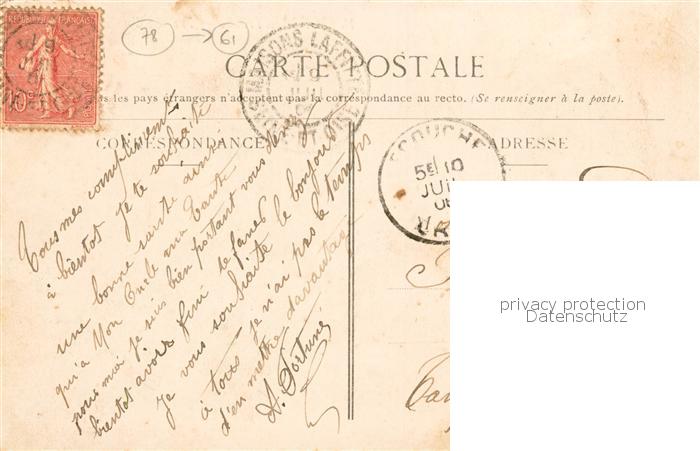 REPUBLIQUE FRANÇAISE
10
78 → 61
MAISONS LAFFITTE
CARTE POSTALE
les pays étrangers n'acceptent pas la correspondance au recto. (Se renseigner à la poste).
CORRESPONDANCE
ADRESSE
ECOUCHE
5E/10
JUIL
Tous mes compliments
à bientôt je te souhaite
une bonne santé ainsi
qu'à Mon Oncle ma tante
pour moi je suis bien portant vous devez
bientôt avoir fini de faner
Je vous souhaite le bonjour
à tous je n'ai pas le temps
d'en mettre davantage
A. Fortuné
privacy protection
Datenschutz